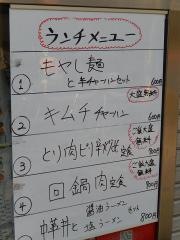 ランチメニュー
① もやし麺
と半チャーハンセット 600円
大盛無料
② キムチチャーハン 600円
ご飯大盛無料
③ とり肉ピリ辛炒定食 800円
ご飯大盛無料
④ 回鍋肉定食 800円
醤油ラーメン
中華丼と塩ラーメン セット 800円